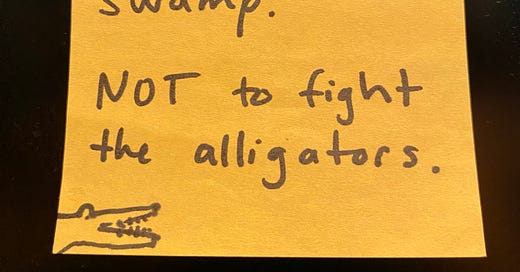 swamp.
NOT to fight
the alligators.